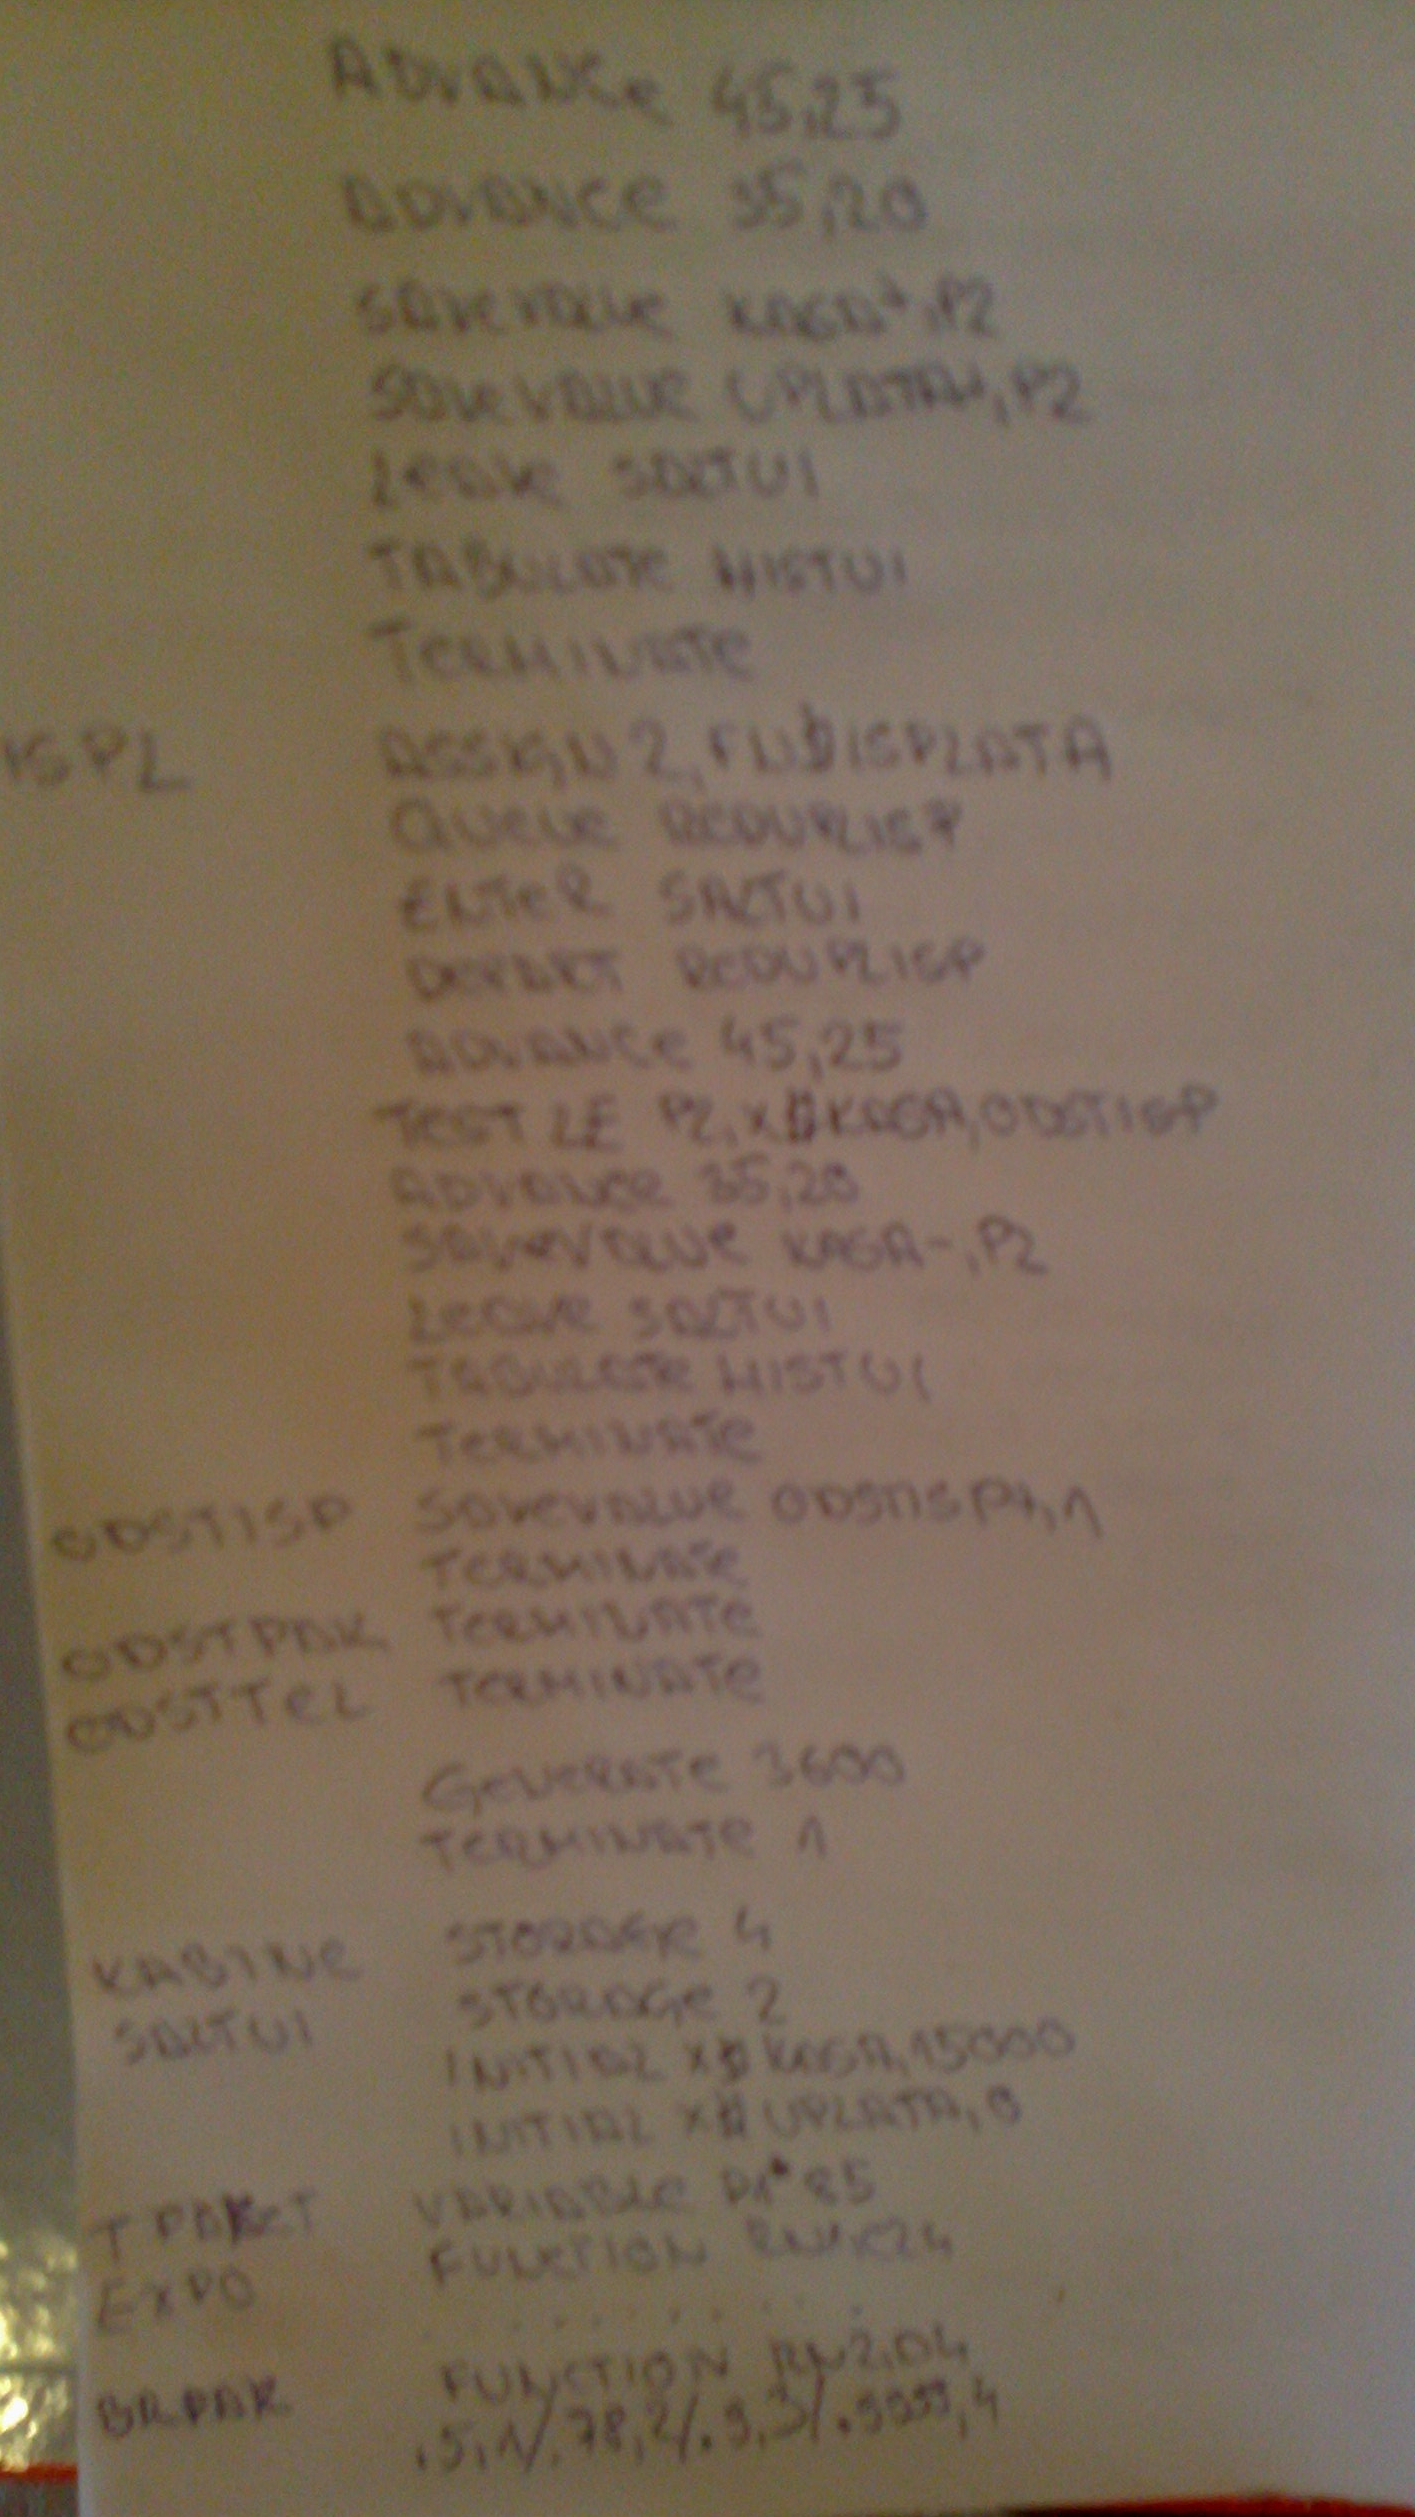 ADVANCE 45,25
ADVANCE 35,20
SAVEVALUE KASA+,P2
SAVEVALUE UPLATA+,P2
LEAVE SALTUI
TABULATE HISTUI
TERMINATE
ISPL ASSIGN 2,FN$ISPLATA
QUEUE REDUPLISP
ENTER SALTUI
DEPART REDUPLISP
ADVANCE 45,25
TEST LE P2,X$KASA,ODSTISP
ADVANCE 35,20
SAVEVALUE KASA-,P2
LEAVE SALTUI
TABULATE HISTUI
TERMINATE
ODSTISP SAVEVALUE ODSTISP+,1
TERMINATE
ODSTPAK TERMINATE
ODSTTEL TERMINATE
GENERATE 3600
TERMINATE 1
KABINE STORAGE 4
SALTUI STORAGE 2
INITIAL X$KASA,15000
INITIAL X$UPLATA,0
TPAKET VARIABLE P1*85
EXPO FUNCTION RN1,C24
. . . . . . . . .
BRPAK FUNCTION RN2,D4
.5,1/.78,2/.9,3/.9999,4